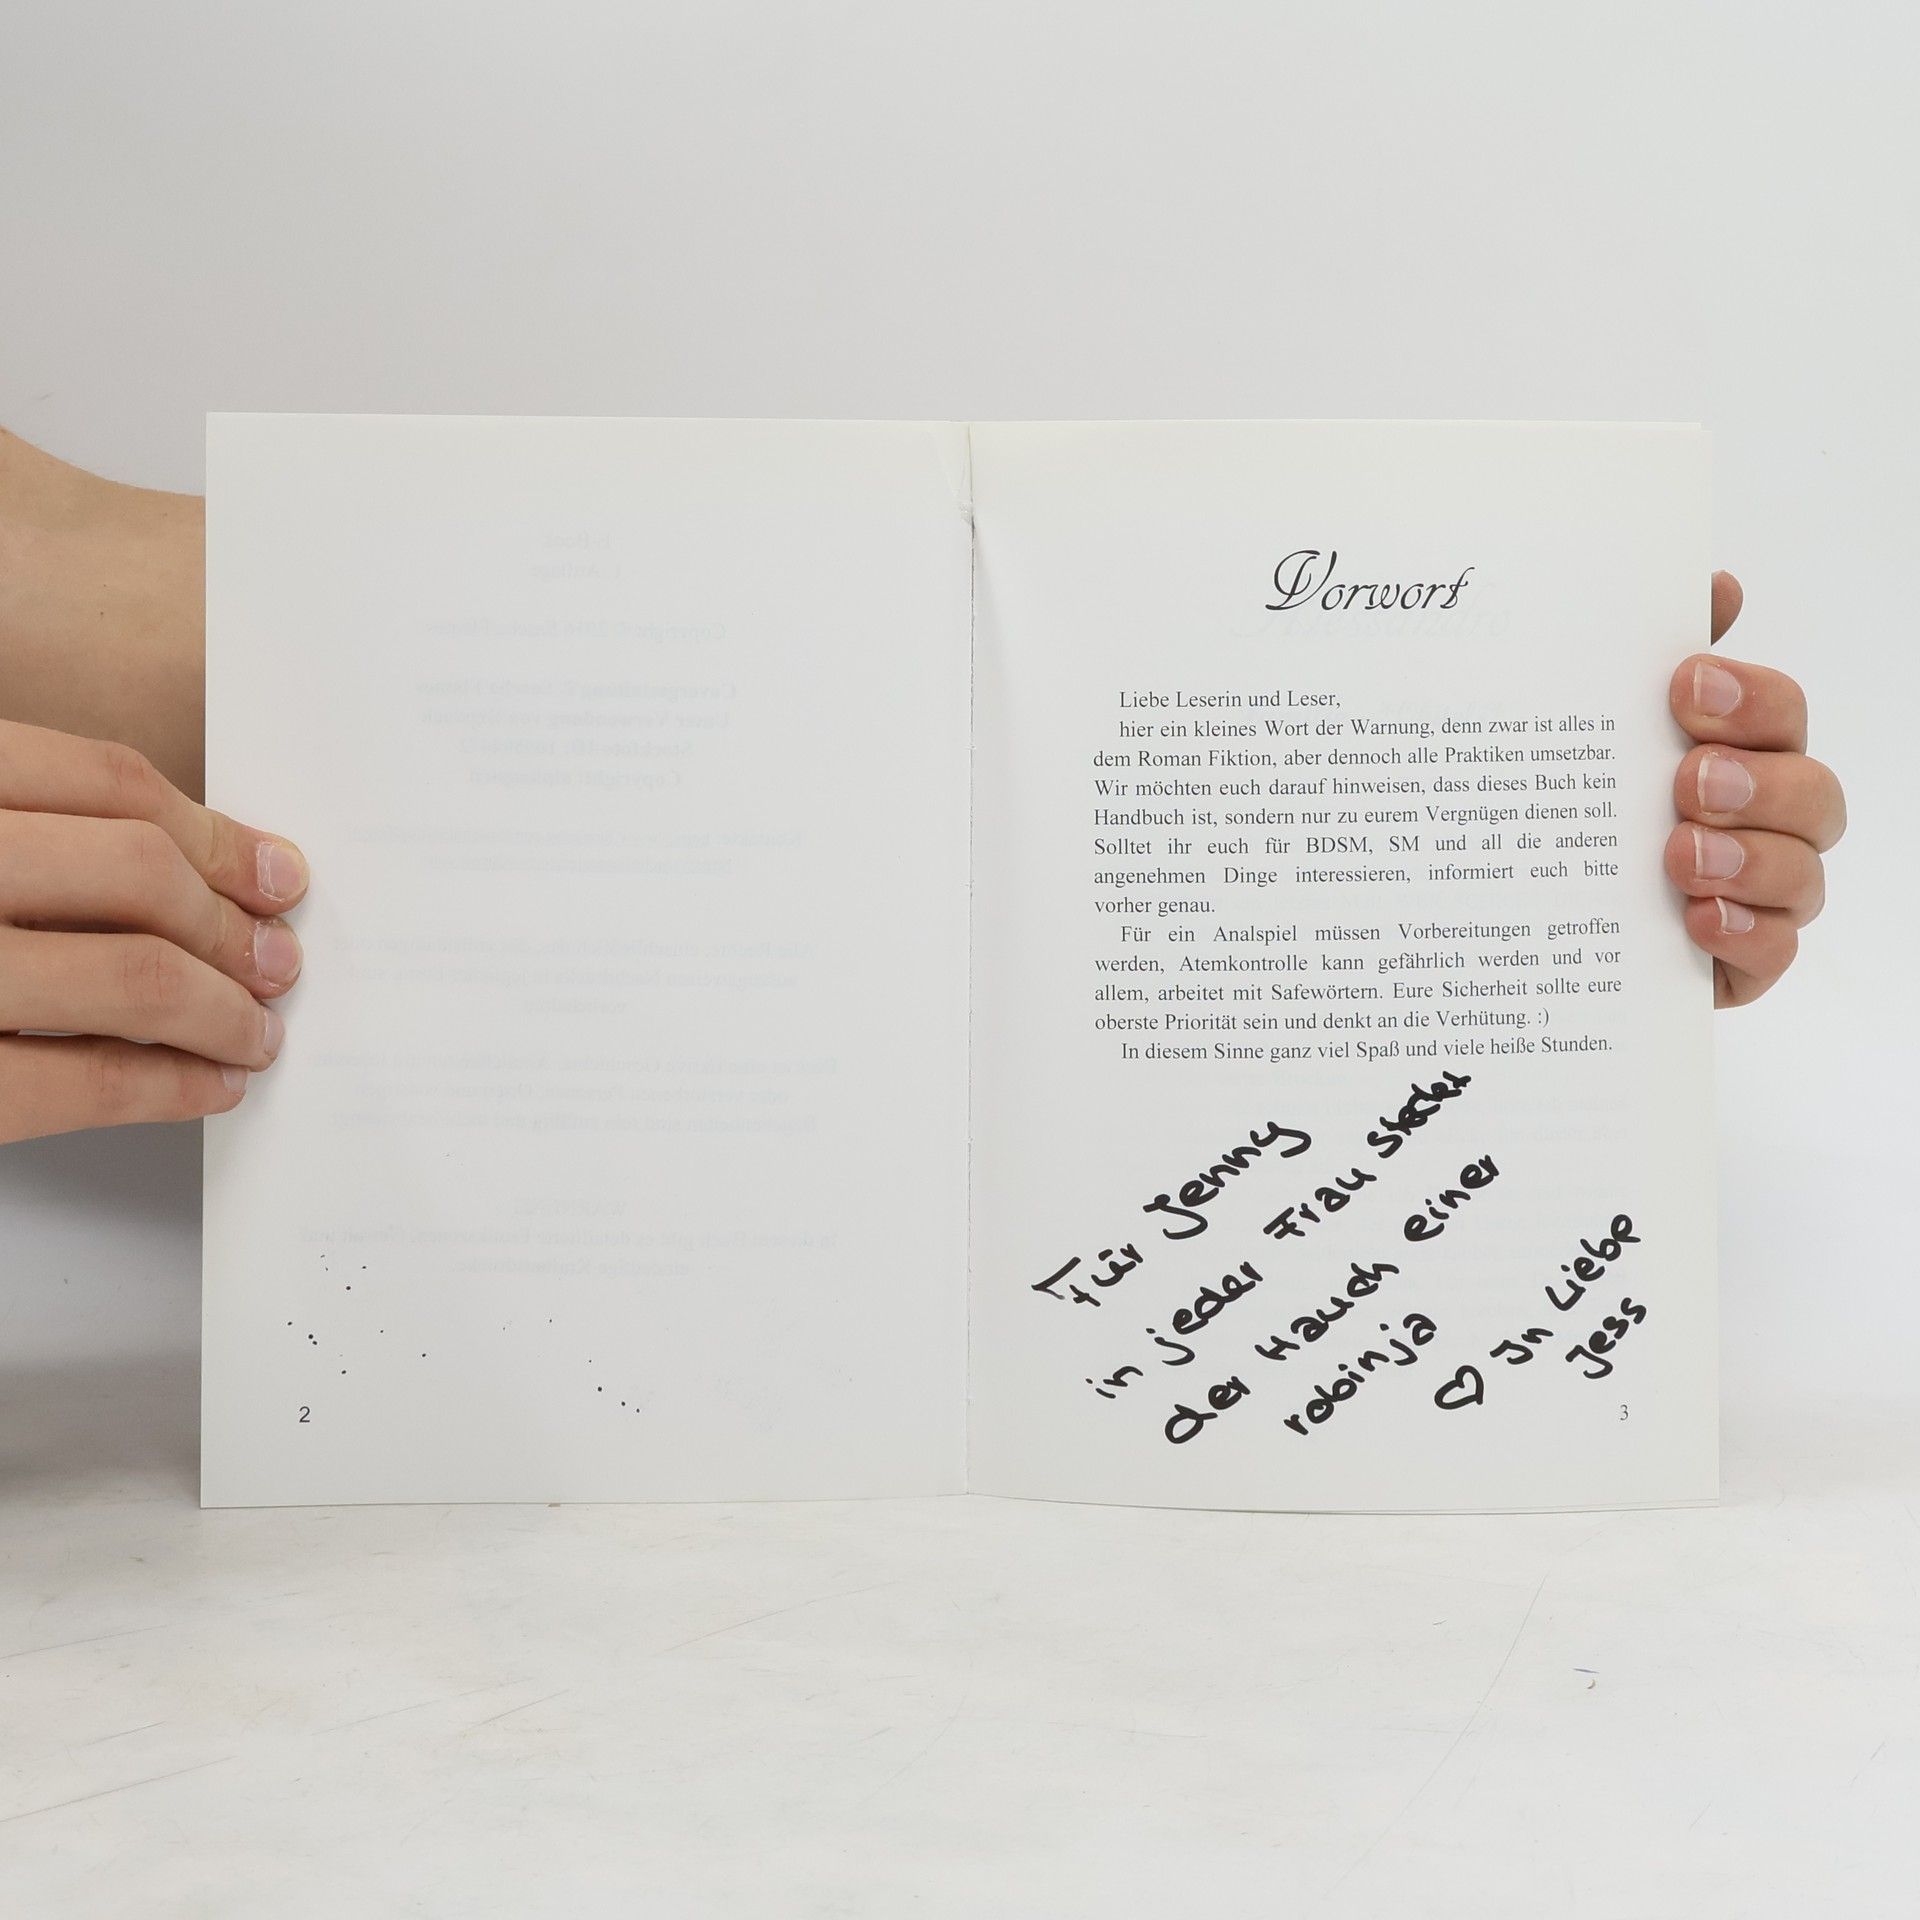 2
Vorwort
Liebe Leserin und Leser,
hier ein kleines Wort der Warnung, denn zwar ist alles in
dem Roman Fiktion, aber dennoch alle Praktiken umsetzbar.
Wir möchten euch darauf hinweisen, dass dieses Buch kein
Handbuch ist, sondern nur zu eurem Vergnügen dienen soll.
Solltet ihr euch für BDSM, SM und all die anderen
angenehmen Dinge interessieren, informiert euch bitte
vorher genau.
Für ein Analspiel müssen Vorbereitungen getroffen
werden, Atemkontrolle kann gefährlich werden und vor
allem, arbeitet mit Safewörtern. Eure Sicherheit sollte eure
oberste Priorität sein und denkt an die Verhütung. :)
In diesem Sinne ganz viel Spaß und viele heiße Stunden.
Für Jenny
in jeder Frau
der Hauch einer
robinja
♡ In Liebe
Jess
3